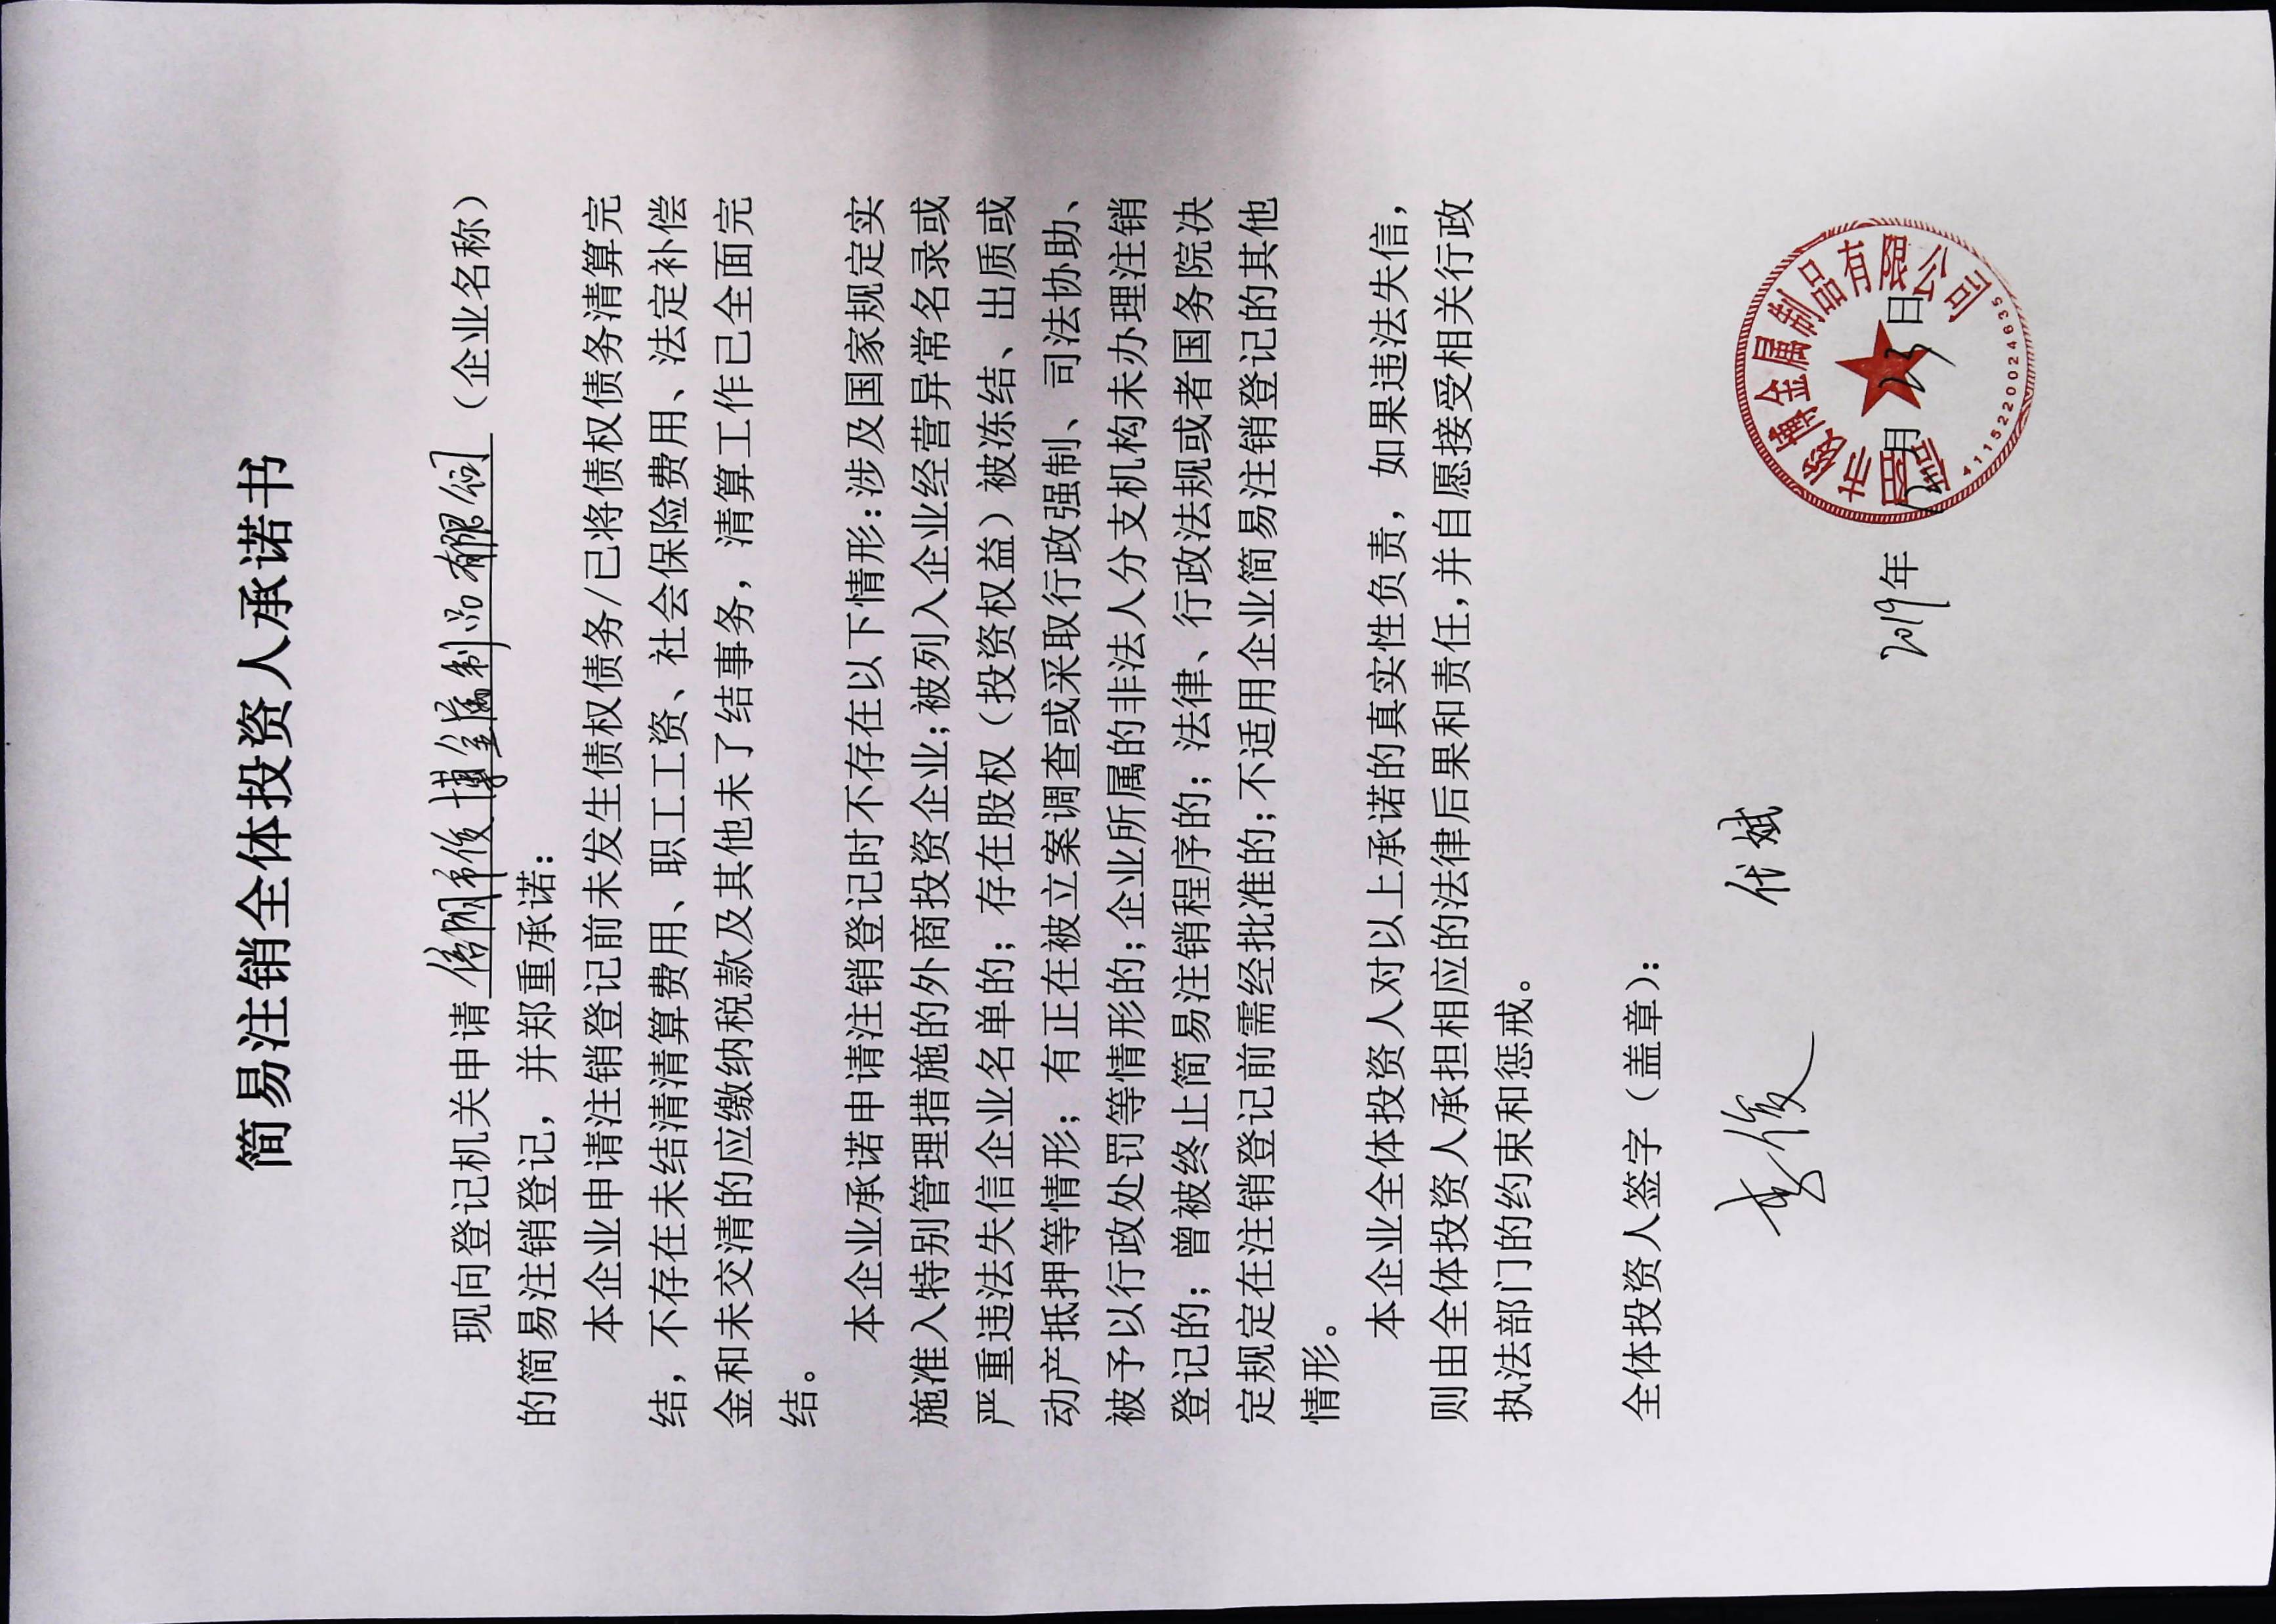 简易注销全体投资人承诺书
现向登记机关申请信阳市俊博金属制品有限公司（企业名称）
的简易注销登记，并郑重承诺：
本企业申请注销登记前未发生债权债务/已将债权债务清算完
结，不存在未结清清算费用、职工工资、社会保险费用、法定补偿
金和未交清的应缴纳税款及其他未了结事务，清算工作已全面完
结。
本企业承诺申请注销登记时不存在以下情形：涉及国家规定实
施准入特别管理措施的外商投资企业；被列入企业经营异常名录或
严重违法失信企业名单的；存在股权（投资权益）被冻结、出质或
动产抵押等情形；有正在被立案调查或采取行政强制、司法协助、
被予以行政处罚等情形的；企业所属的非法人分支机构未办理注销
登记的；曾被终止简易注销程序的；法律、行政法规或者国务院决
定规定在注销登记前需经批准的；不适用企业简易注销登记的其他
情形。
本企业全体投资人对以上承诺的真实性负责，如果违法失信，
则由全体投资人承担相应的法律后果和责任，并自愿接受相关行政
执法部门的约束和惩戒。
全体投资人签字（盖章）：
李俊 代斌
2019年12月23日
信阳市俊博金属制品有限公司
4115220024635